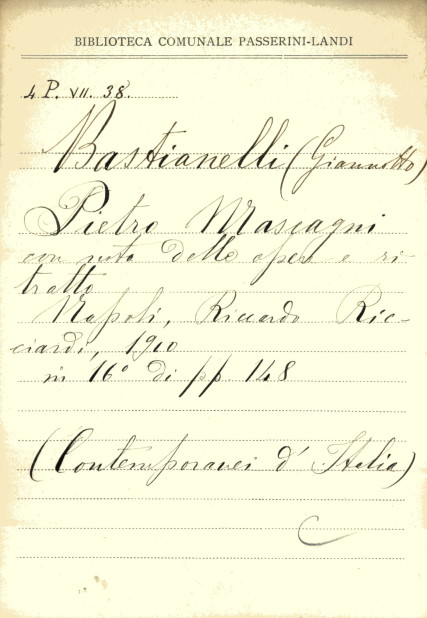 BIBLIOTECA COMUNALE PASSERINI-LANDI
4 P. VII. 38.
Bastianelli (Giannotto)
Pietro Mascagni
con nota delle opere e ri-
tratto
Napoli, Riccardo Ric-
ciardi, 1910
in 16° di pp. 148
(Contemporanei d'Italia)